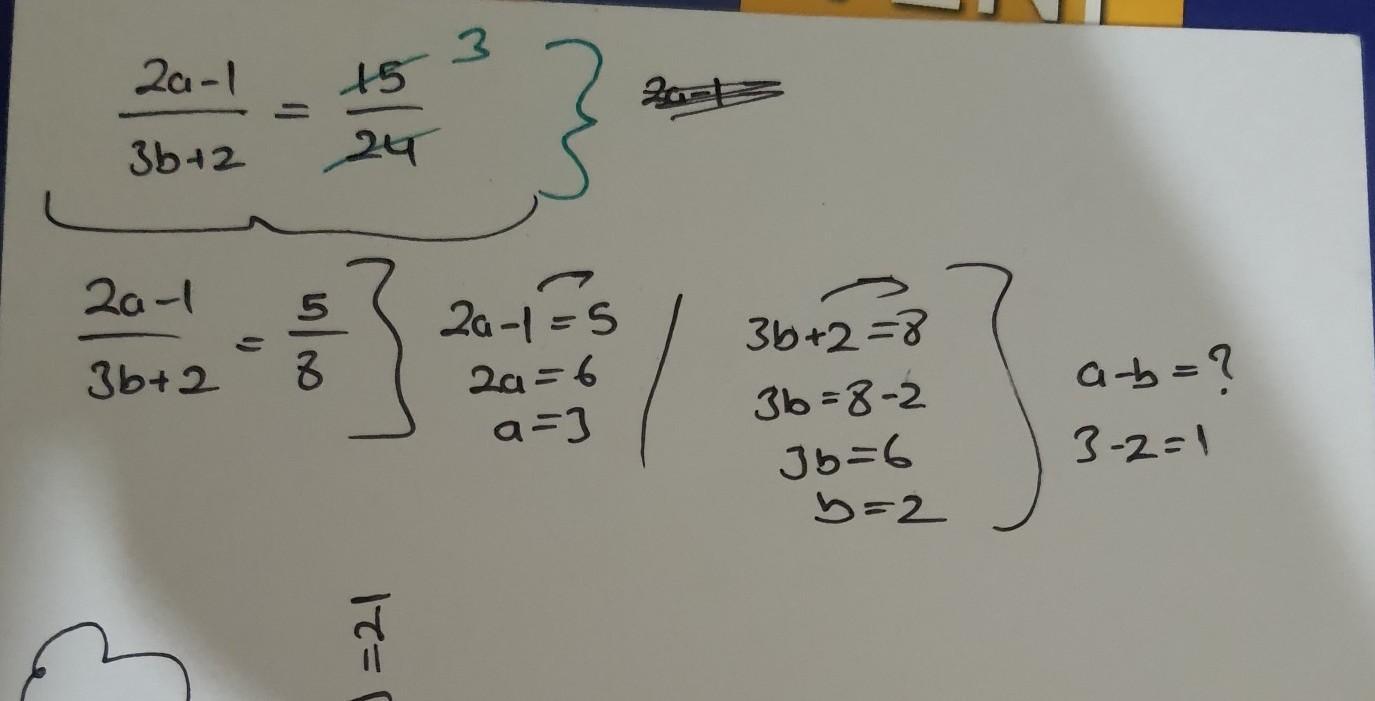 2a-1 / 3b+2 = 15 / 24 3
2a-1
2a-1 / 3b+2 = 5 / 8
2a-1=5
2a=6
a=3
3b+2=8
3b=8-2
3b=6
b=2
a-b=?
3-2=1
=21